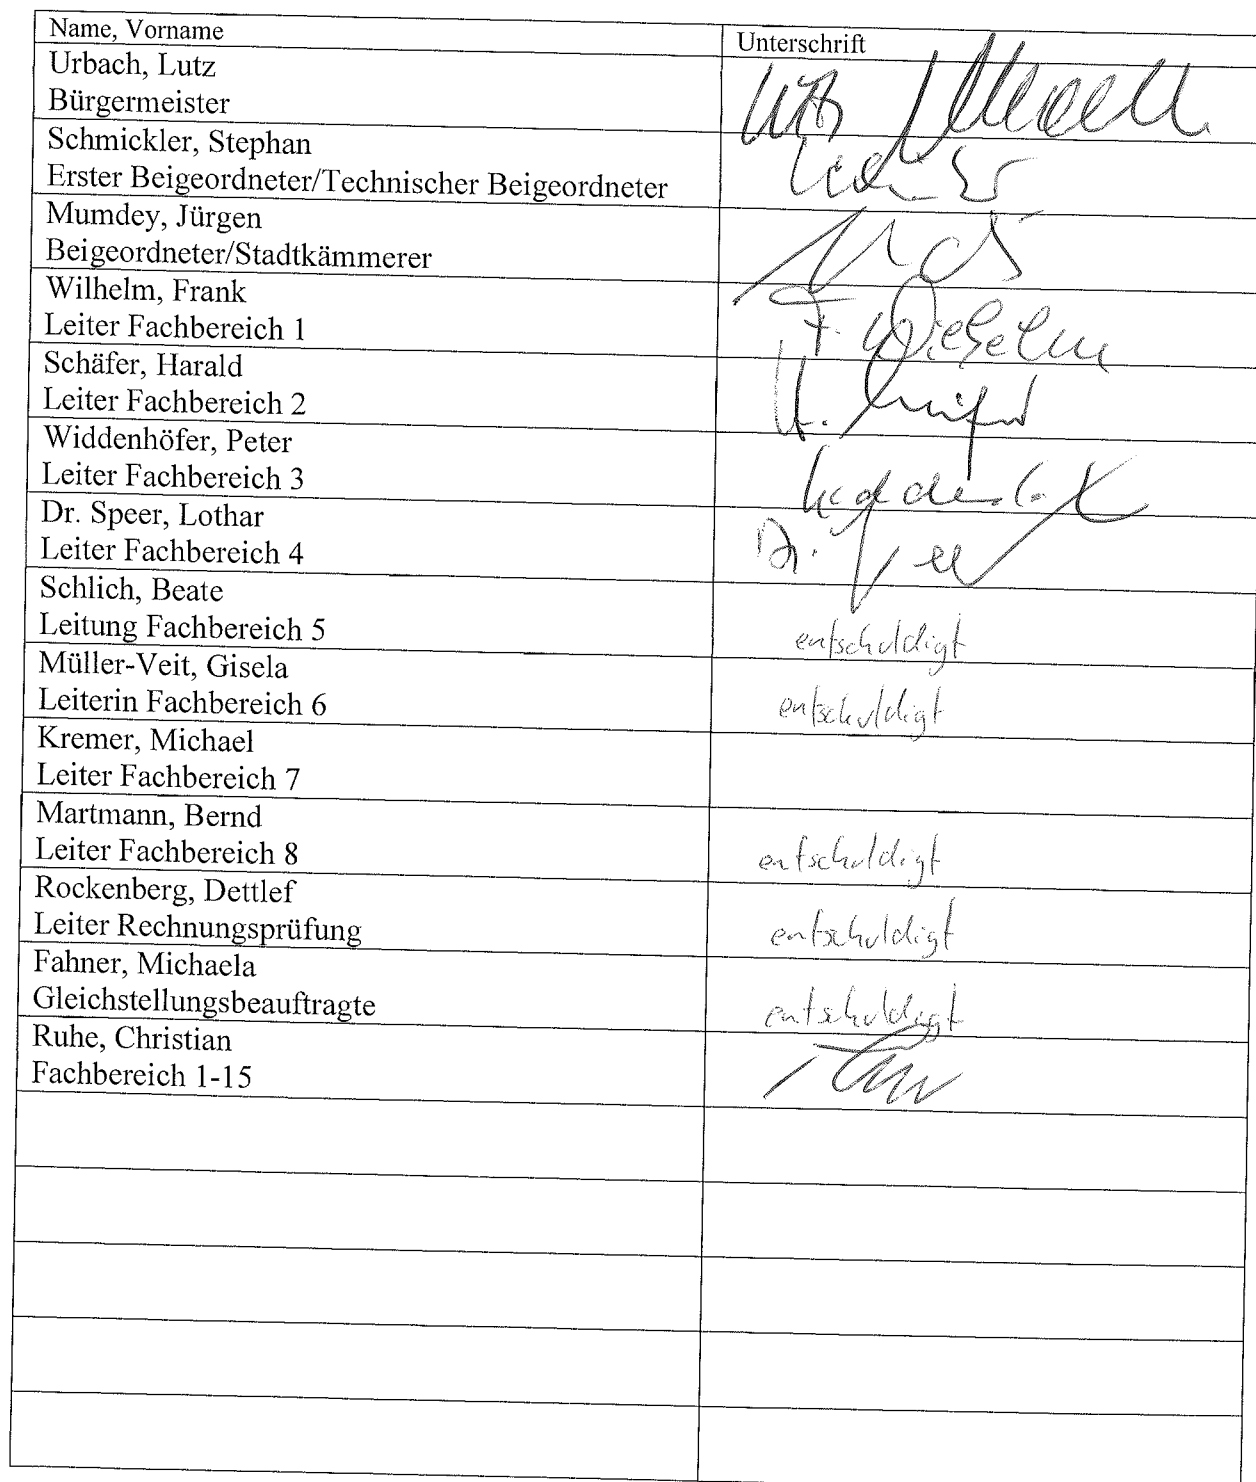 Name, Vorname
Unterschrift
Urbach, Lutz
Bürgermeister
Schmickler, Stephan
Erster Beigeordneter/Technischer Beigeordneter
Mumdey, Jürgen
Beigeordneter/Stadtkämmerer
Wilhelm, Frank
Leiter Fachbereich 1
F. Wilhelm
Schäfer, Harald
Leiter Fachbereich 2
Widdenhöfer, Peter
Leiter Fachbereich 3
Dr. Speer, Lothar
Leiter Fachbereich 4
Dr. Speer
Schlich, Beate
Leitung Fachbereich 5
entschuldigt
Müller-Veit, Gisela
Leiterin Fachbereich 6
entschuldigt
Kremer, Michael
Leiter Fachbereich 7
Martmann, Bernd
Leiter Fachbereich 8
entschuldigt
Rockenberg, Dettlef
Leiter Rechnungsprüfung
entschuldigt
Fahner, Michaela
Gleichstellungsbeauftragte
entschuldigt
Ruhe, Christian
Fachbereich 1-15